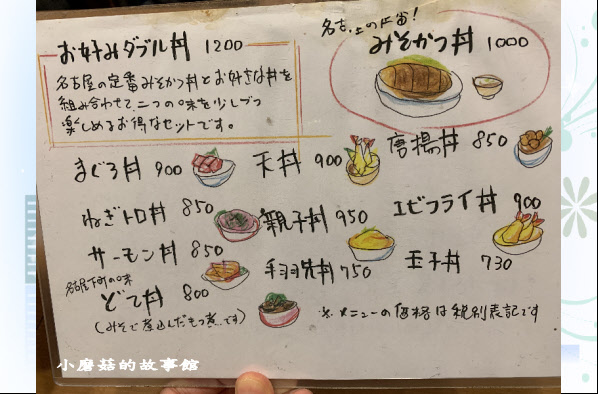 お好みダブル丼 1200
名古屋の定番みそかつ丼とお好きな丼を
組み合わせて二つの味を少しづつ
楽しめるお得なセットです。
みそかつ丼 1000
まぐろ丼 900
天丼 900
唐揚丼 850
ねぎトロ丼 850
親子丼 950
エビフライ丼 900
サーモン丼 850
手羽先丼 750
玉子丼 730
名古屋下町の味
どて丼 800
(みそで煮込んだもつ煮です)
※メニューの価格は税別表記です
小磨菇的故事館